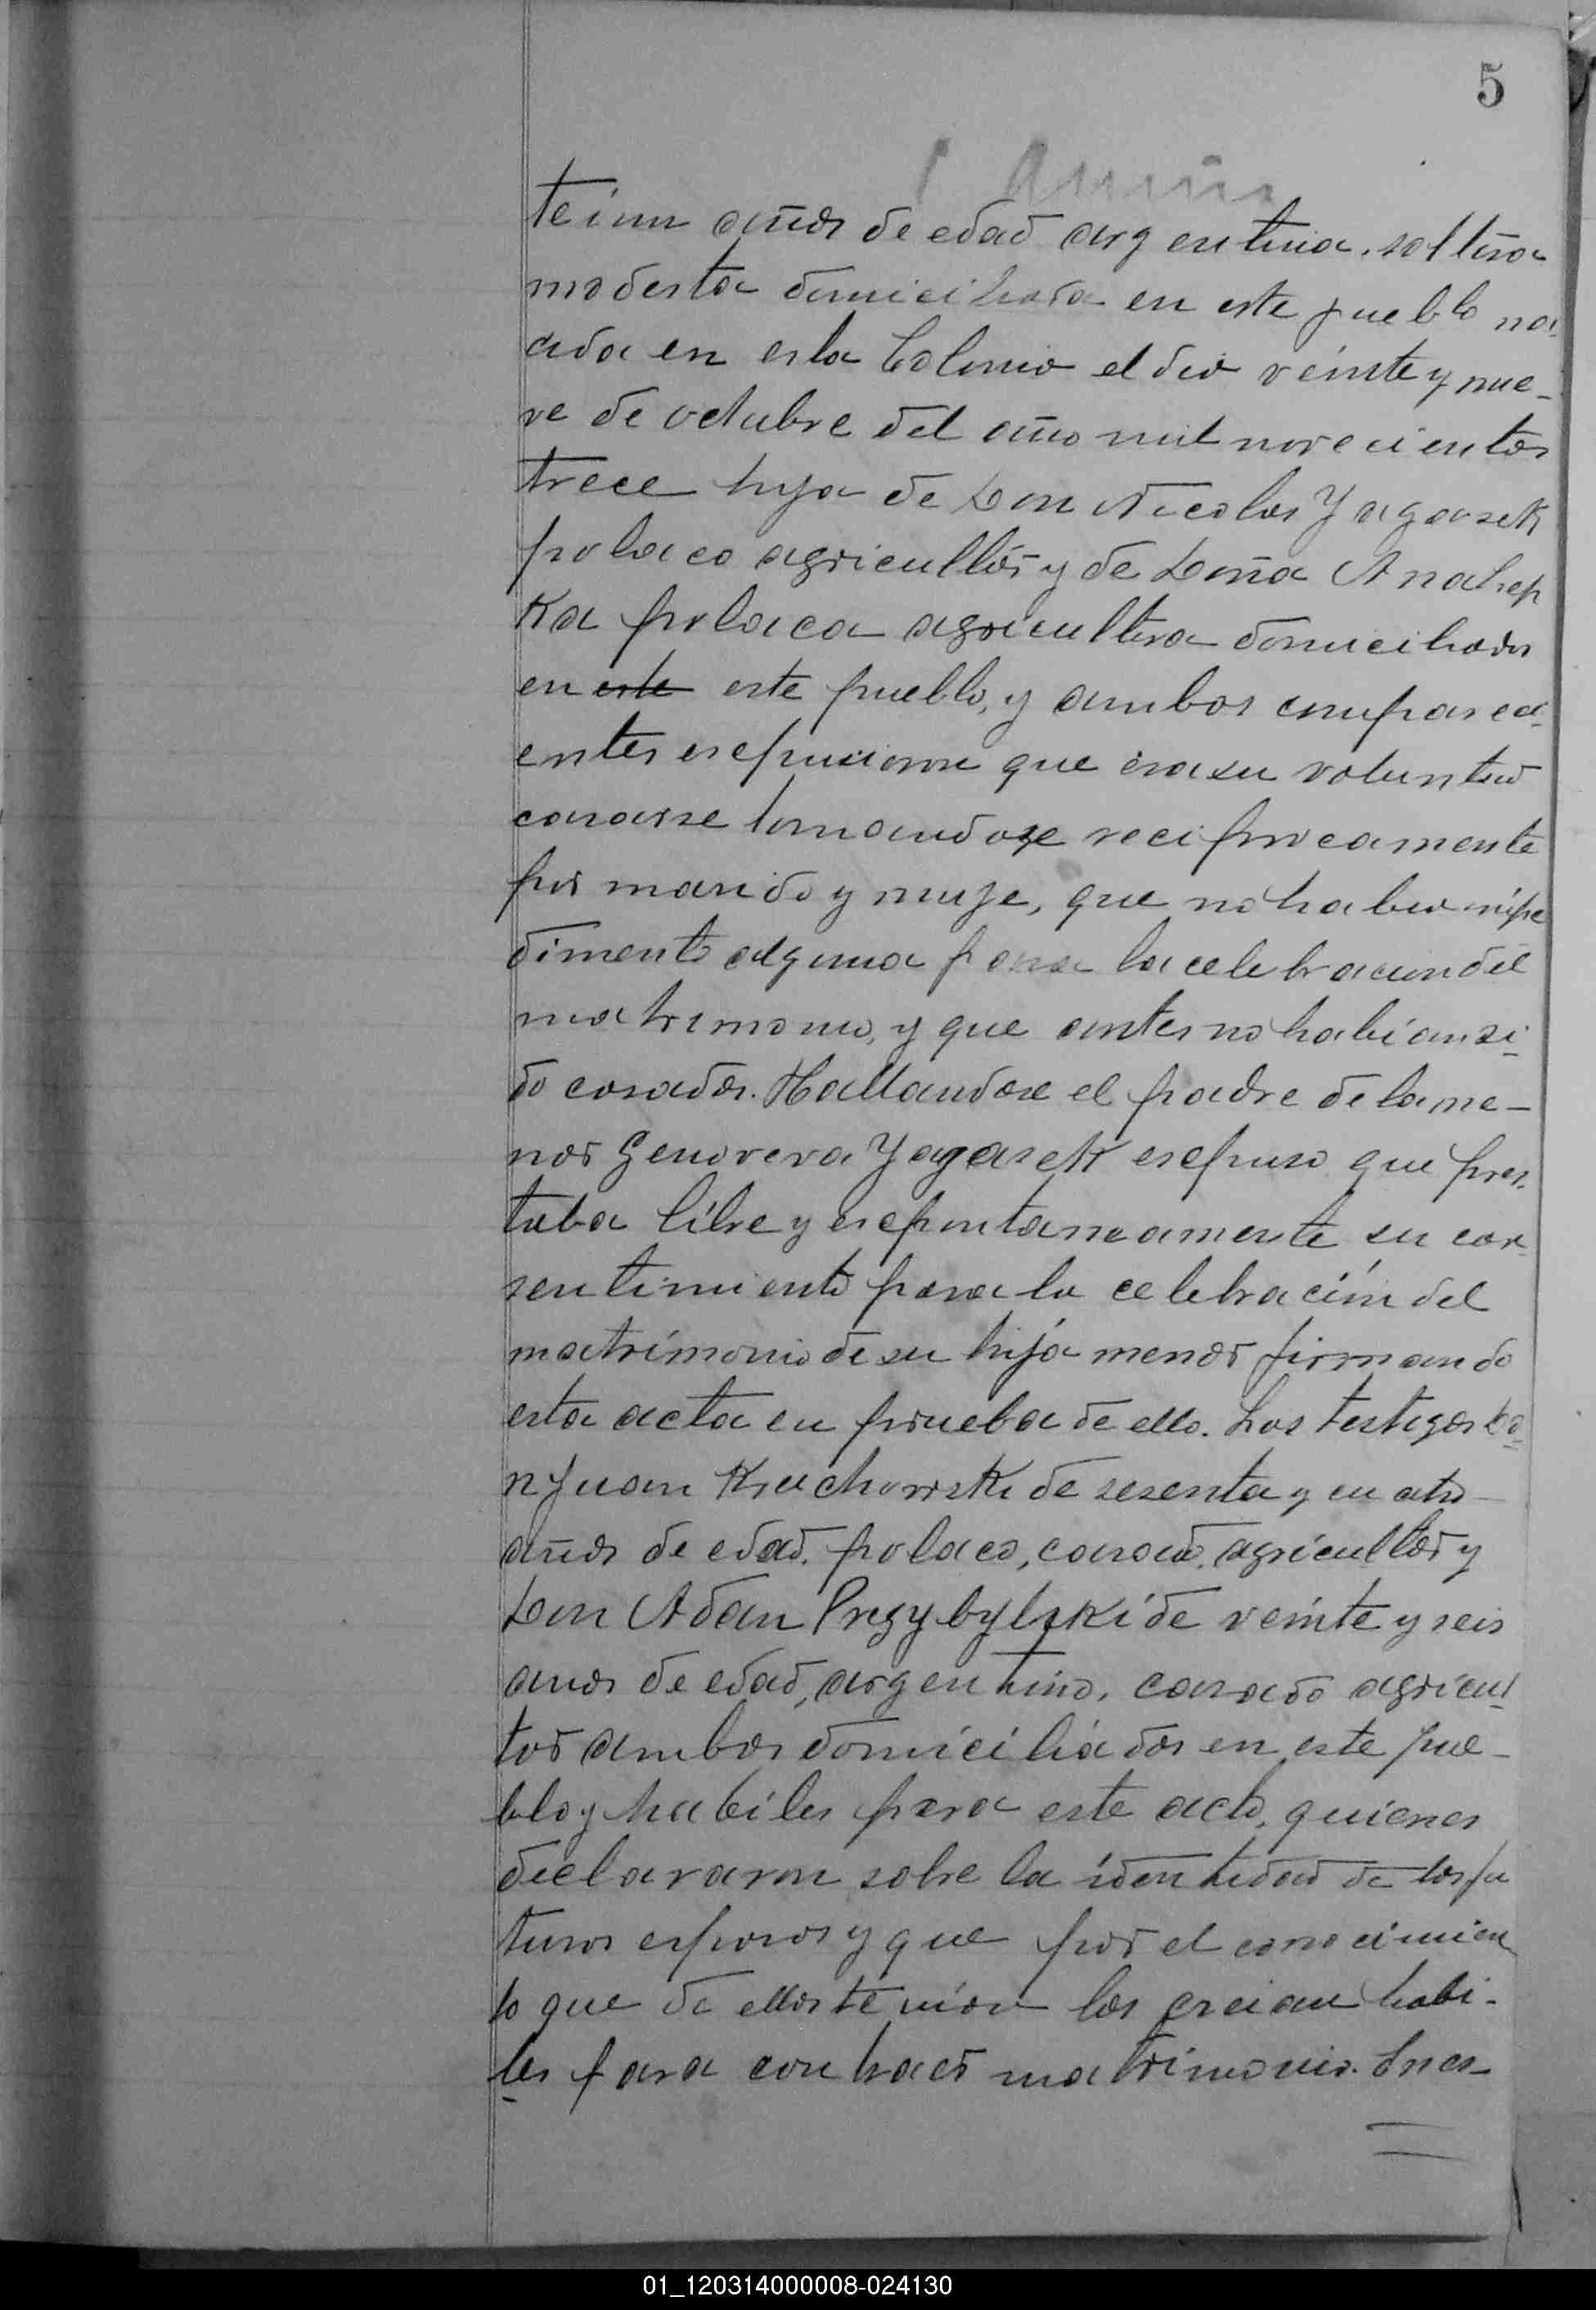 5
teiun años de edad argentina, soltera
modesta domiciliada en este pueblo na-
cida en esta Colonia el dia veinte y nue-
ve de octubre del año mil novecientos
trece hija de Don Nicolas Yagasek
polaco agricultór y de Doña Ana Lep
ka polaca agricultora domiciliados
en este este pueblo, y ambos compareci-
entes espusieron que era su voluntad
casarse tomandose reciprocamente
por marido y muje, que no habia impe
dimento alguna para la celebracion del
matrimonio, y que antes no habian si-
do casados. Hallandose el padre de la me-
nor Genoveva Yagasek espuso que pres-
taba libre y espontaneamente su con-
sentimiento para la celebración del
matrimonio de su hija menor firmando
esta acta en prueba de ello. Los testigos Do-
n Juan Kruchowski de sesenta y cuatro
años de edad, polaco, casado, agricultor y
Don Adan Przybylski de veinte y seis
anos de edad, argentino, casado agricul-
tor ambos domiciliados en este pue-
blo y habiles para este acto, quienes
declararon sobre la identidad de los fu
turos esposos y que por el conocimien
to que de ellos tenian los creian habi-
les para contraer matrimonio. En es-
01_120314000008-024130